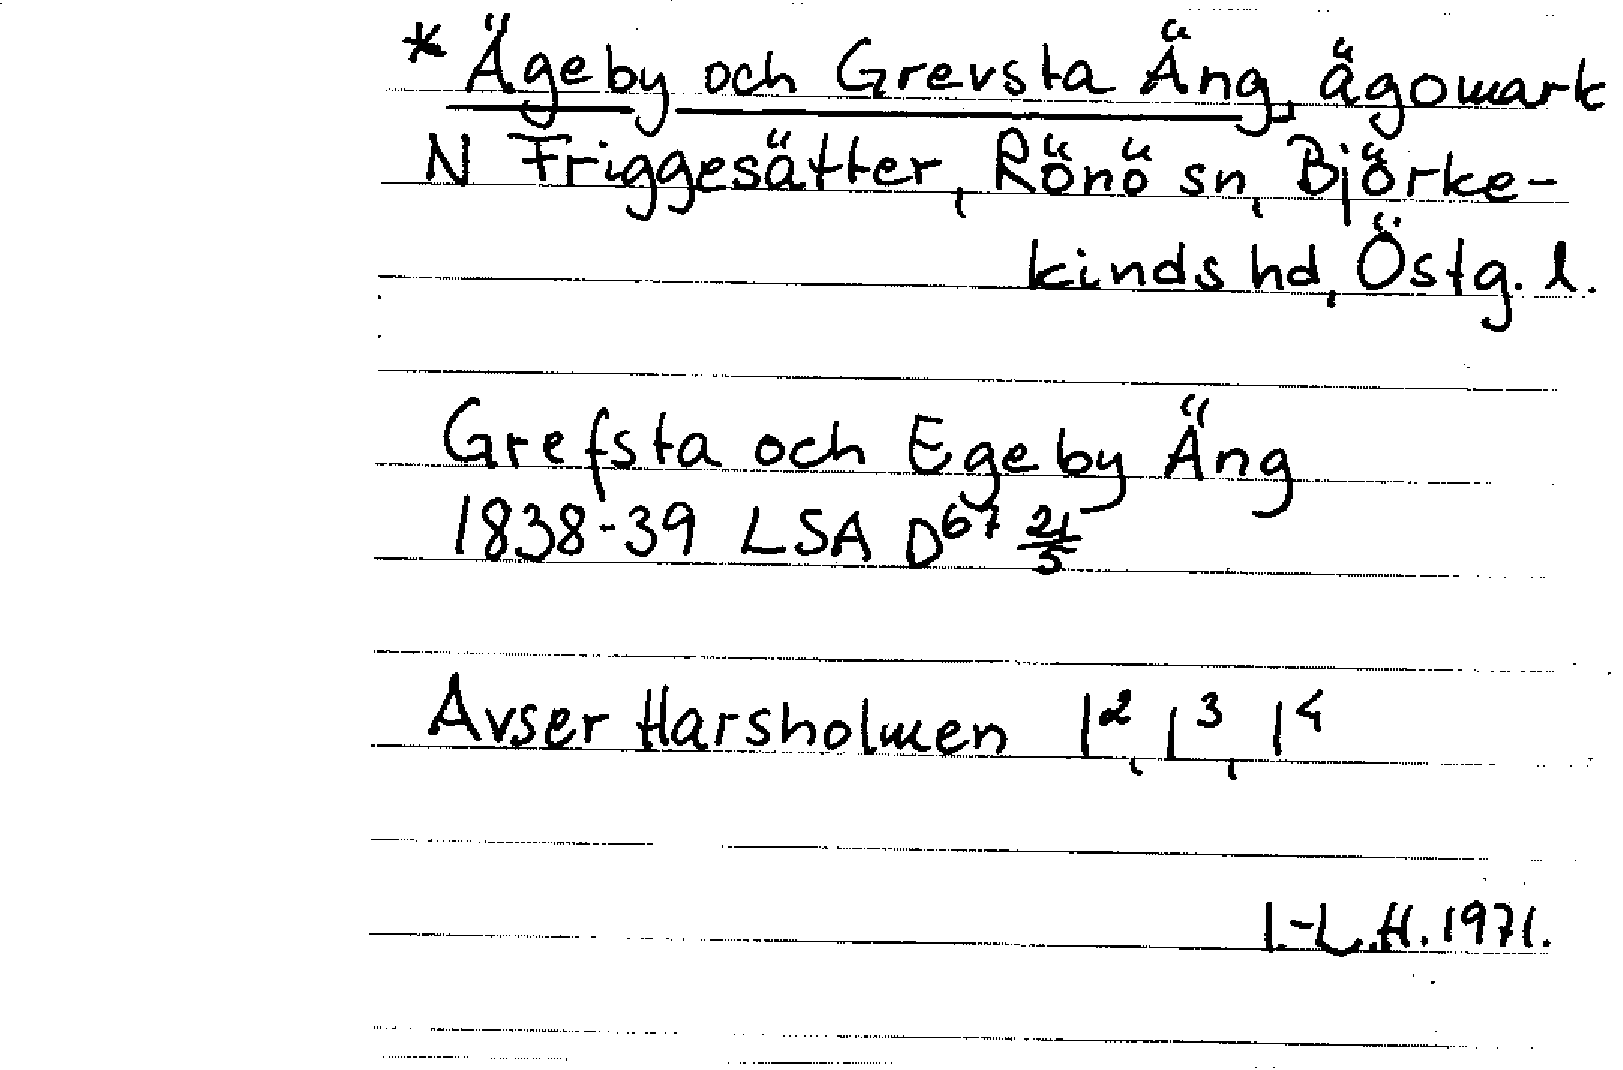 * Ägeby och Grevsta Äng, ägomark
N Friggesätter, Rönö sn, Björke-
kinds hd, Östg. l.
Grefsta och Egeby Äng
1838-39 LSA D67 21/5
Avser Harsholmen 1², 1³, 1⁴
I.-L.H. 1971.